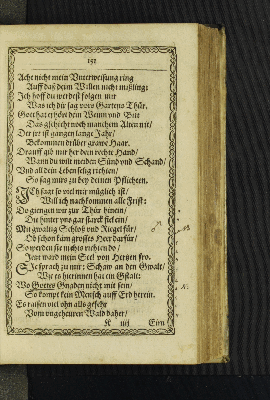 151
Acht nicht mein Vnterweisung ring
Auff daß deim Willen nicht mißling:
Ich hoff du werdest folgen mir
Was ich dir sag vors Gartens Thür.
Gott hat erhört dein Wenn und Bitt
Das geschicht noch manchem Alten nit/
Der jrr ist gangen lange Jahr/
Bekommen drüber grawe Haar.
Drauff gib mir her dein rechte Hand/
Wann du wilt meyden Sünd vnd Schand/
Vnd all dein Leben selig richten/
So sag mirs zu bey deinen Pflichten.
Ich sagt so viel mir müglich ist/
Will ich nachkommen alle Frist:
Do giengen wir zur Thür hinein/
Die hinter vns gar starck fiel ein/
Mit gwaltig Schloß vnd Riegel für/
Ob schon käm grosses Heer darfür/
So werden sie nichts richten do/
Jetzt ward mein Seel von Hertzen fro.
Sie sprach zu mir: Schaw an den Gwalt/
Wie es hierinnen hat ein Gstalt:
Wo Gottes Gnaden nicht mit sein/
So kompt kein Mensch auff Erd herein.
Es rassen viel ohn alls gefehr
Vom vngeheuren Wald daher/
K iiij
Eim